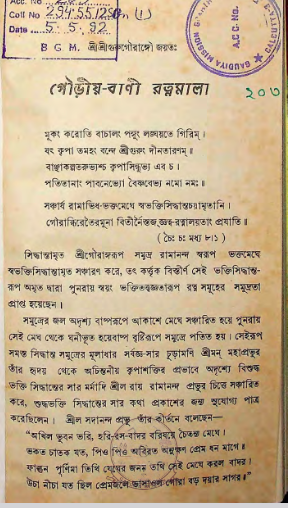 Acc. No
Coll No 294.551280 (1)
Date 5.5.92
B G M.
GAUDIYA MISSION
২০৩
শ্রীশ্রীগুরুগৌরাঙ্গৌ জয়তঃ
গৌড়ীয়-বাণী রত্নমালা
মূকং করোতি বাচালং পঙ্গুং লঙ্ঘয়তে গিরিম্।
যৎ কৃপা তমহং বন্দে শ্রীগুরুং দীনতারণম্॥
বাঞ্ছাকল্পতরুভ্যশ্চ কৃপাসিন্ধুভ্য এব চ।
পতিতানাং পাবনেভ্যো বৈষ্ণবেভ্য নমো নমঃ॥
সঞ্চার্য রামাভিধ-ভক্তমেঘে স্বভক্তিসিদ্ধান্তচয়ামৃতানি।
গৌরাব্ধিরেতৈরমুনা বিতীর্নৈস্তজ্‌জ্ঞত্ব-রত্নালয়তাং প্রযাতি॥
(চৈঃ চঃ মধ্য ৮।১)
সিদ্ধান্তামৃত শ্রীগৌরাঙ্গরূপ সমুদ্র রামানন্দ স্বরূপ ভক্তমেঘে
স্বভক্তিসিদ্ধান্তামৃত সঞ্চারণ করে, তৎ কর্তৃক বিস্তীর্ণ সেই ভক্তিসিদ্ধান্ত-
রূপ অমৃত দ্বারা পুনরায় স্বয়ং ভক্তিতত্ত্বজ্ঞতারূপ রত্ন সমূহের সমুদ্রতা
প্রাপ্ত হয়েছেন।
সমুদ্রের জল অদৃশ্য বাষ্পরূপে আকাশে মেঘে সঞ্চারিত হয়ে পুনরায়
সেই মেঘ থেকে ঘনীভূত হয়ে বাষ্প বৃষ্টিরূপে সমুদ্রে পতিত হয়। সেইরূপ
সমস্ত সিদ্ধান্ত সমুদ্রের মূলাধার সর্বজ্ঞ-সার চূড়ামণি শ্রীমন্ মহাপ্রভুর
তাঁর হৃদয় থেকে অচিন্তনীয় কৃপাশক্তির প্রভাবে অদৃশ্যে বিশুদ্ধ
ভক্তি সিদ্ধান্তের সার মর্মাদি শ্রীল রায় রামানন্দ প্রভুর চিত্তে সঞ্চারিত
করে, শুদ্ধভক্তি সিদ্ধান্তের সার কথা প্রকাশের জন্য সুযোগ্য পাত্র
করেছিলেন। শ্রীল সদানন্দ প্রভু তাঁর কীর্তনে বলেছেন—
“অখিল ভুবন ভরি, হরি-রস-বাদর বরিষয়ে চৈতন্য মেঘে।
ভকত চাতক যত, পিও পিও অবিরত অনুক্ষণ প্রেম ধন মাগে॥
ফাল্গুন পূর্ণিমা তিথি মেঘের জনম তথি সেই মেঘে করল বাদর।
উচা নীচা যত ছিল প্রেমজলে ভাসাওল গোরা বড় দয়ার সাগর॥”